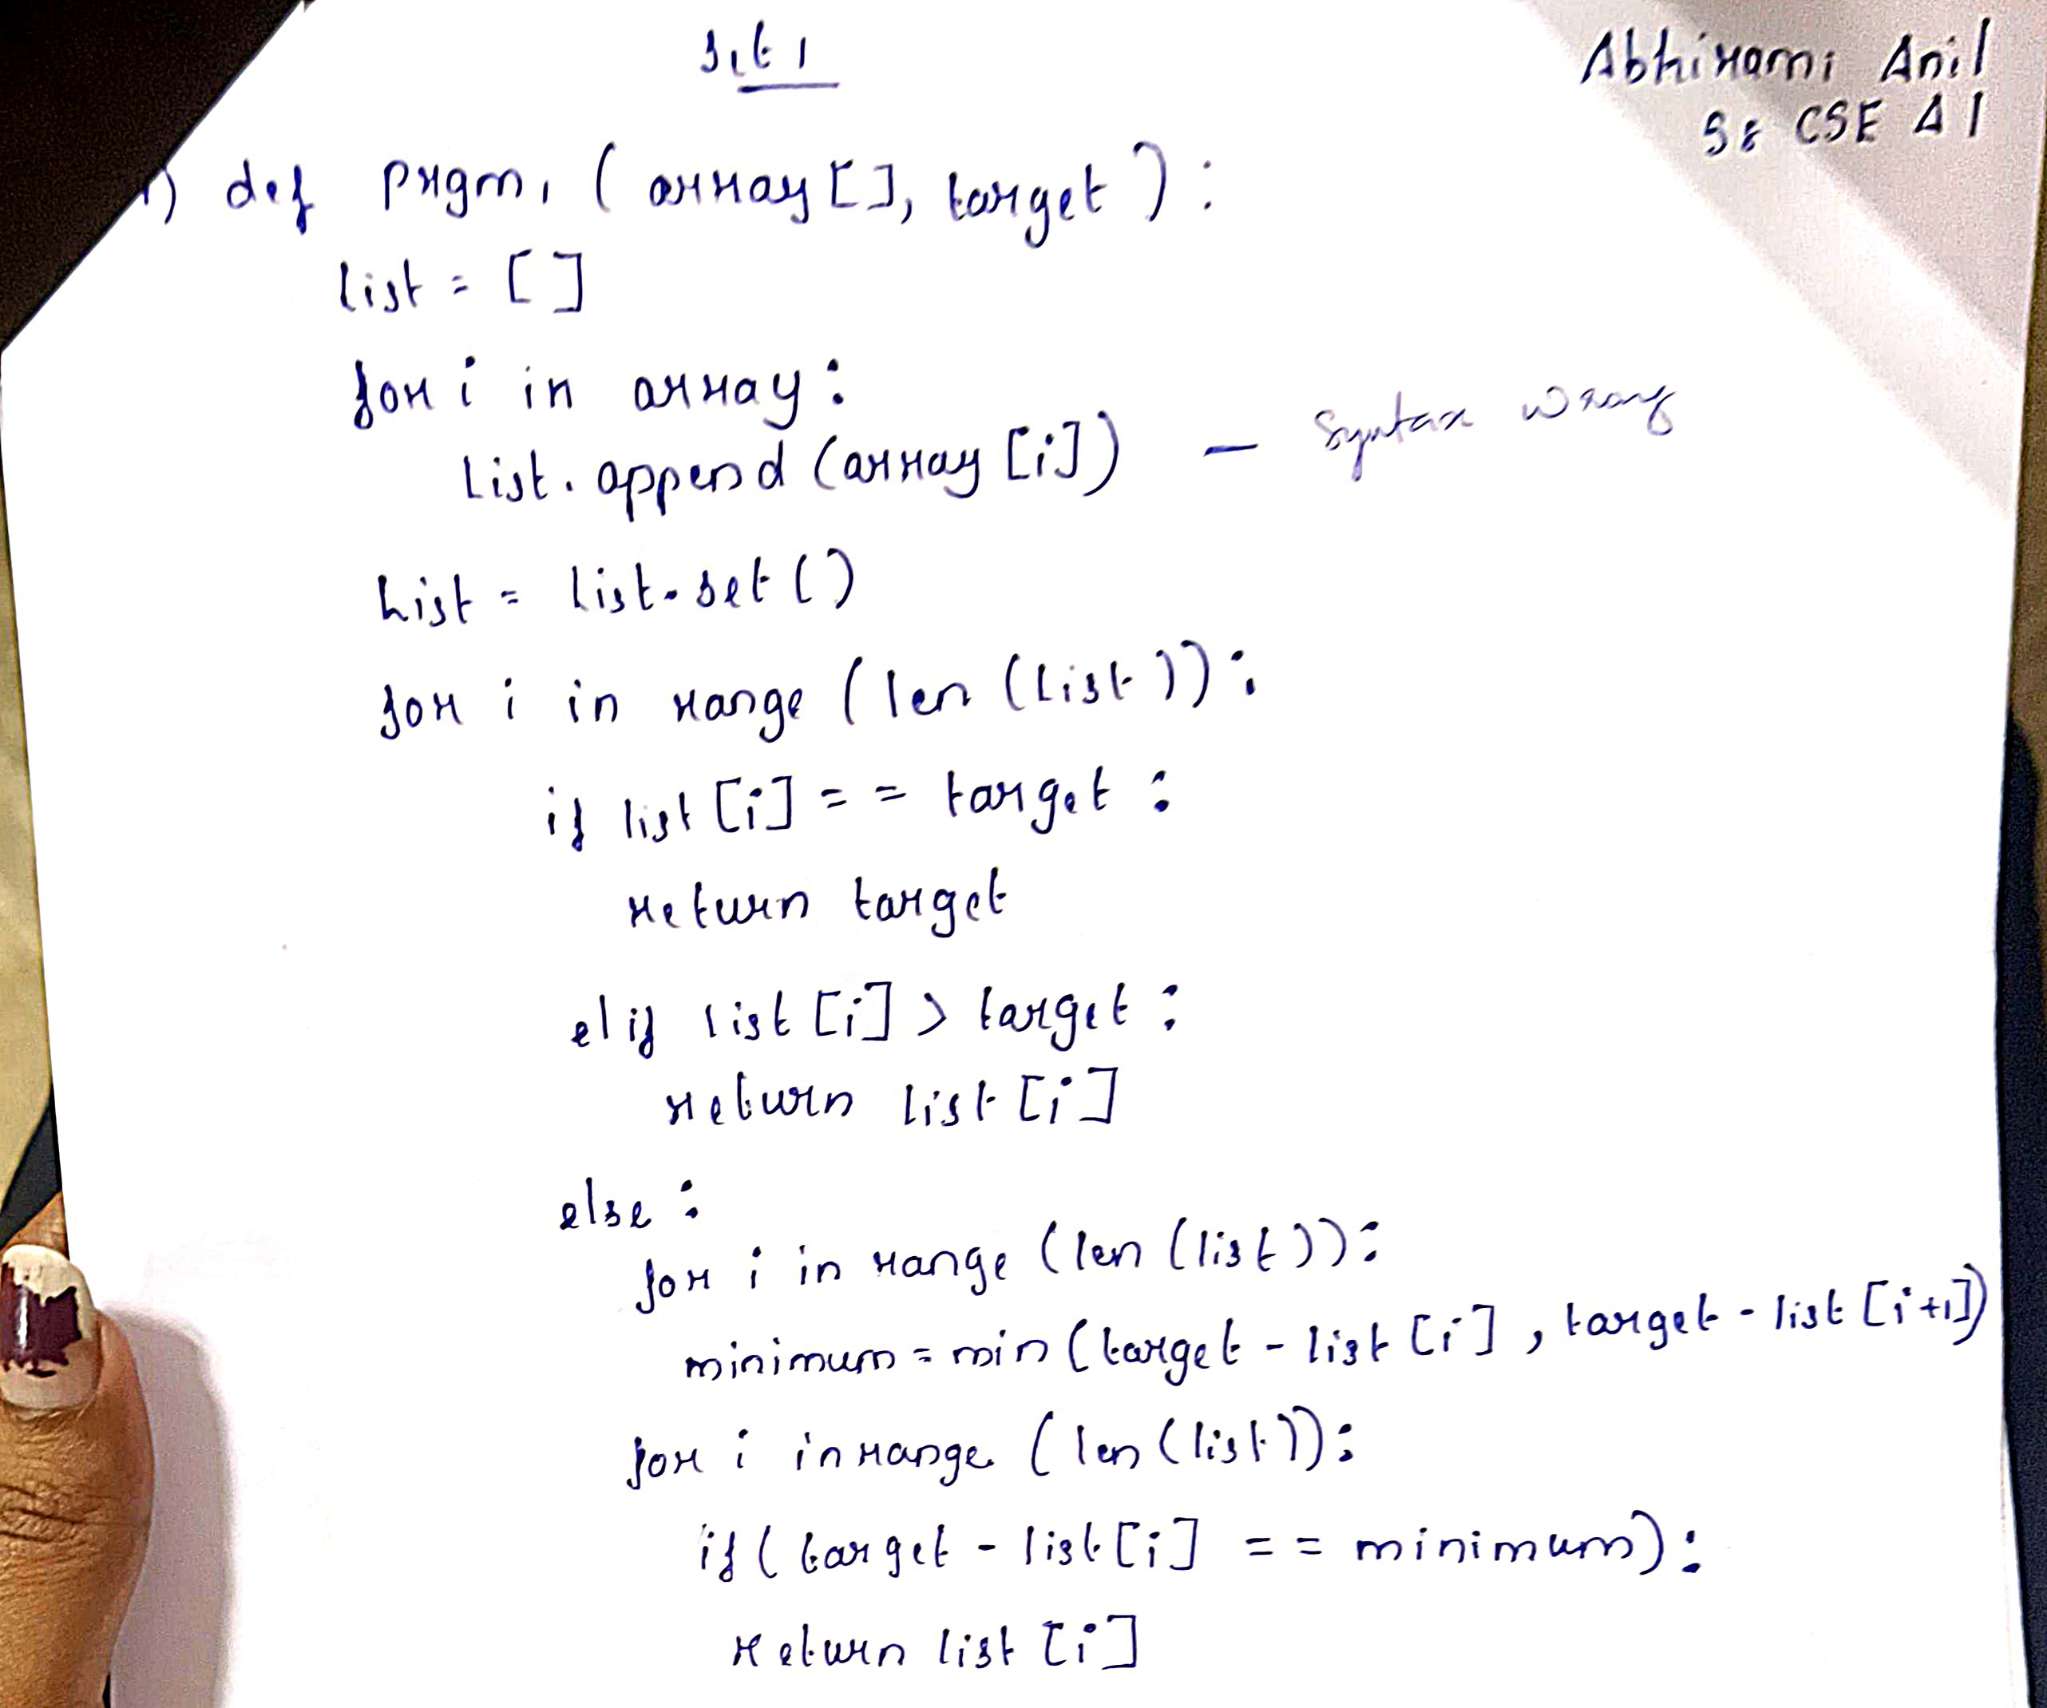 Set 1
Abhirami Anil
S8 CSE A1
1) def prgm1 ( array [ ], target ) :
list = [ ]
for i in array :
list. append (array [i]) - Syntax wrong
List = list. set ( )
for i in range ( len (list )) :
if list [i] = = target :
return target
elif list [i] > target :
return list [i]
else :
for i in range ( len (list )) :
minimum = min ( target - list [i] , target - list [i+1])
for i in range ( len (list )) :
if ( target - list [i] = = minimum) :
return list [i]